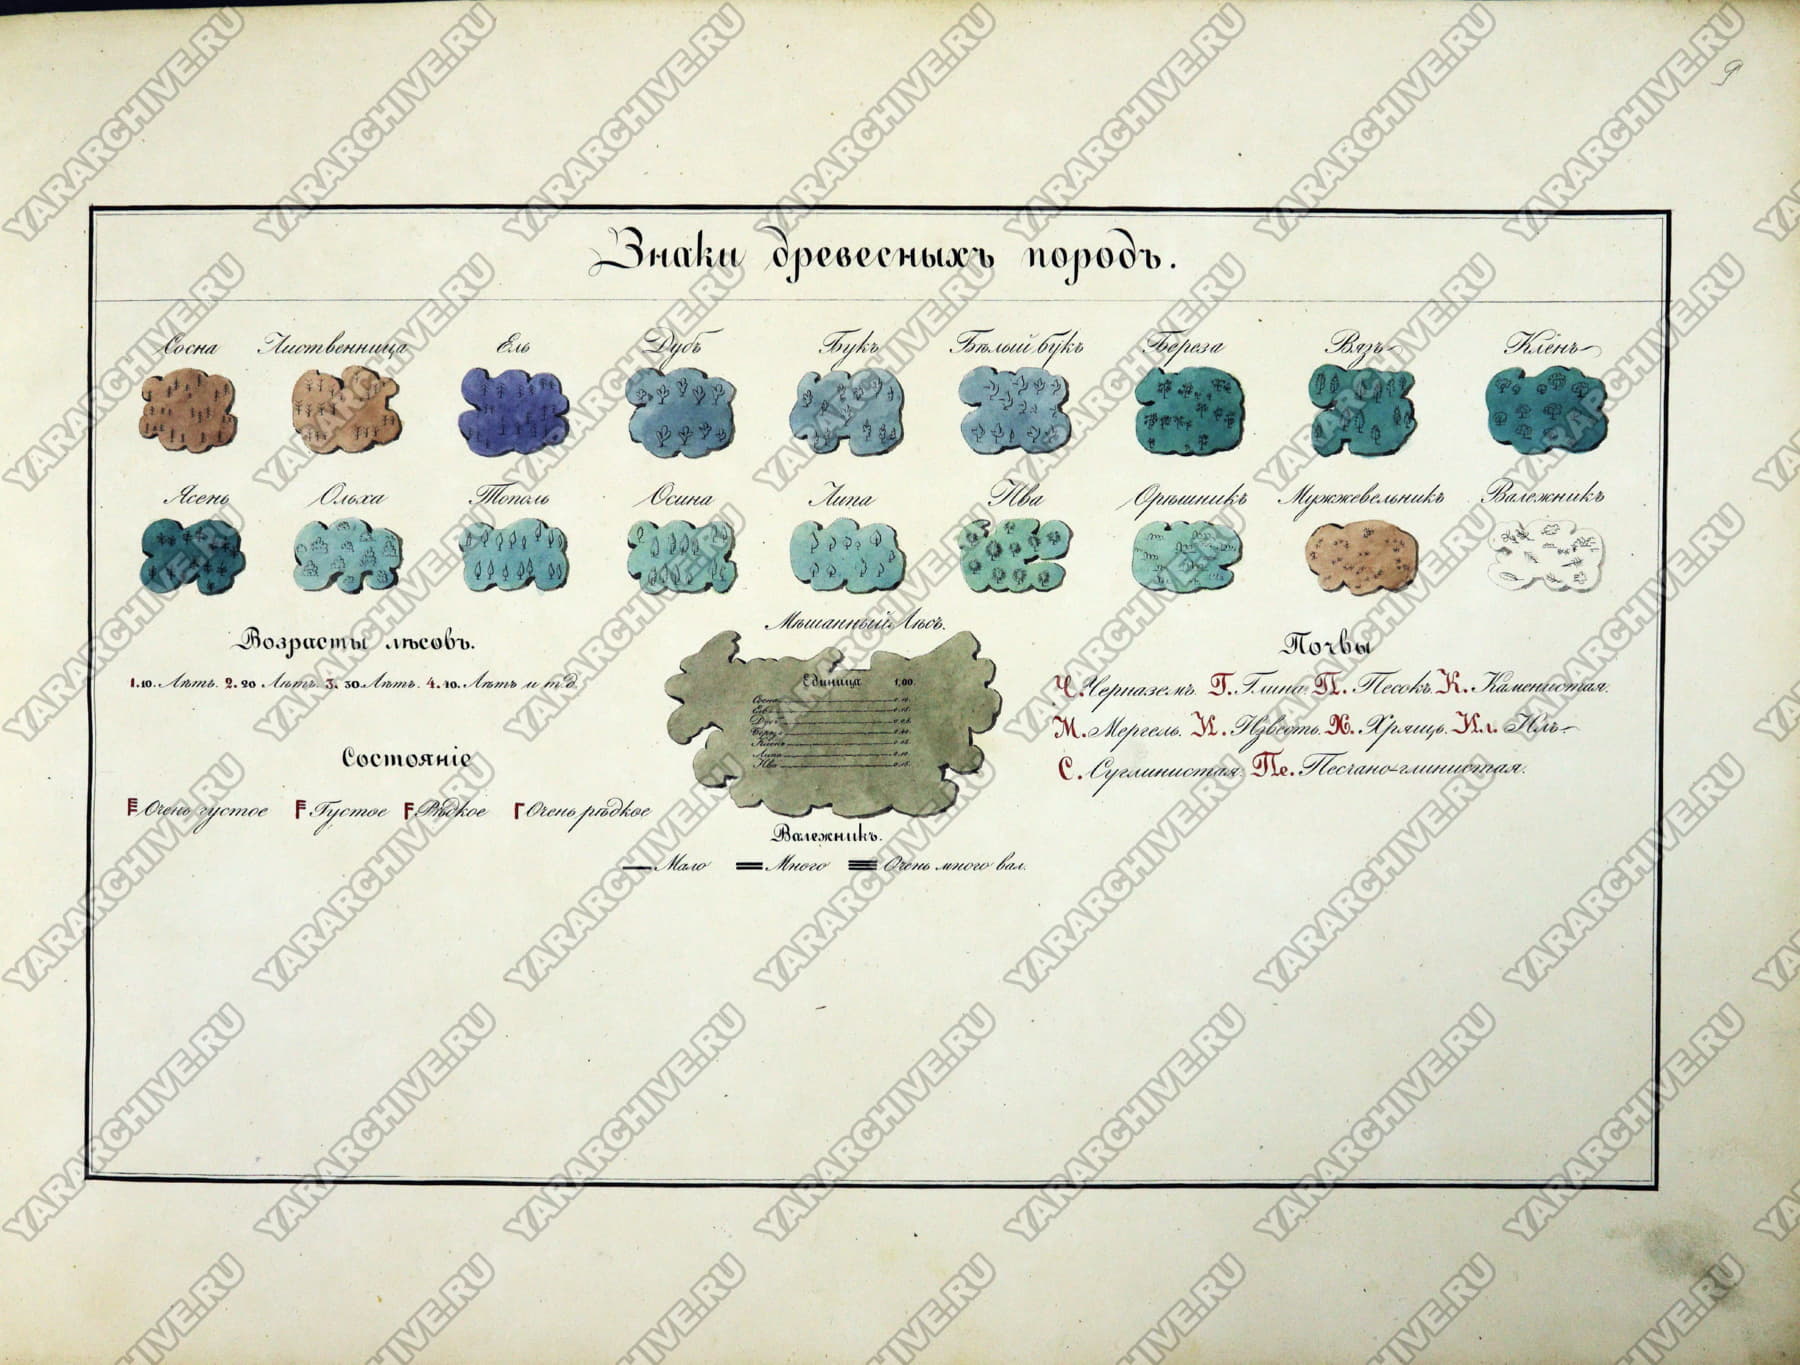 9
Знаки древесныхъ породъ.
Сосна Лиственница Ель Дубъ Букъ Бѣлый букъ Береза Вязъ Клёнъ
Ясень Ольха Тополь Осина Липа Ива Орѣшникъ Мужжевельникъ Валежникъ
Возрасты лѣсовъ.
1. 10. Лѣтъ. 2. 20 Лѣтъ. 3. 30 Лѣтъ. 4. 40. Лѣтъ и т.д.
Состояніе
Очень густое Густое Рѣдкое Очень рѣдкое
Мѣшанный Лѣсъ.
Единица 1,00.
Сосна
Ель
Дубъ
Береза
Клёнъ
Липа
Ива
Валежникъ.
Мало Много Очень много вал.
Почвы
Ч. Черназемъ. Г. Глина. П. Песокъ. К. Каменистая.
М. Мергель. И. Известь. Х. Хрящъ. Ил. Илъ
С. Суглинистая. Пе. Песчано-глинистая.
YARARCHIVE.RU